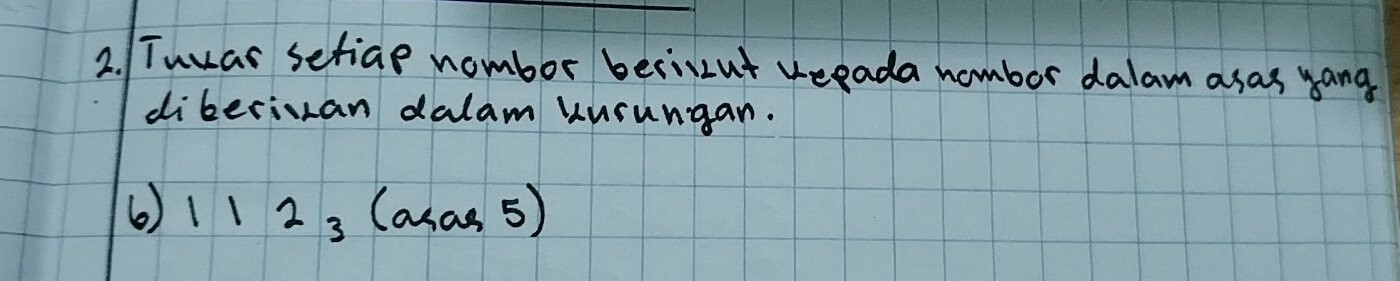 2. Tukar setiap nombor berikut kepada nombor dalam asas yang
diberikan dalam kurungan.
b) 1 1 2 ₃ (asas 5)